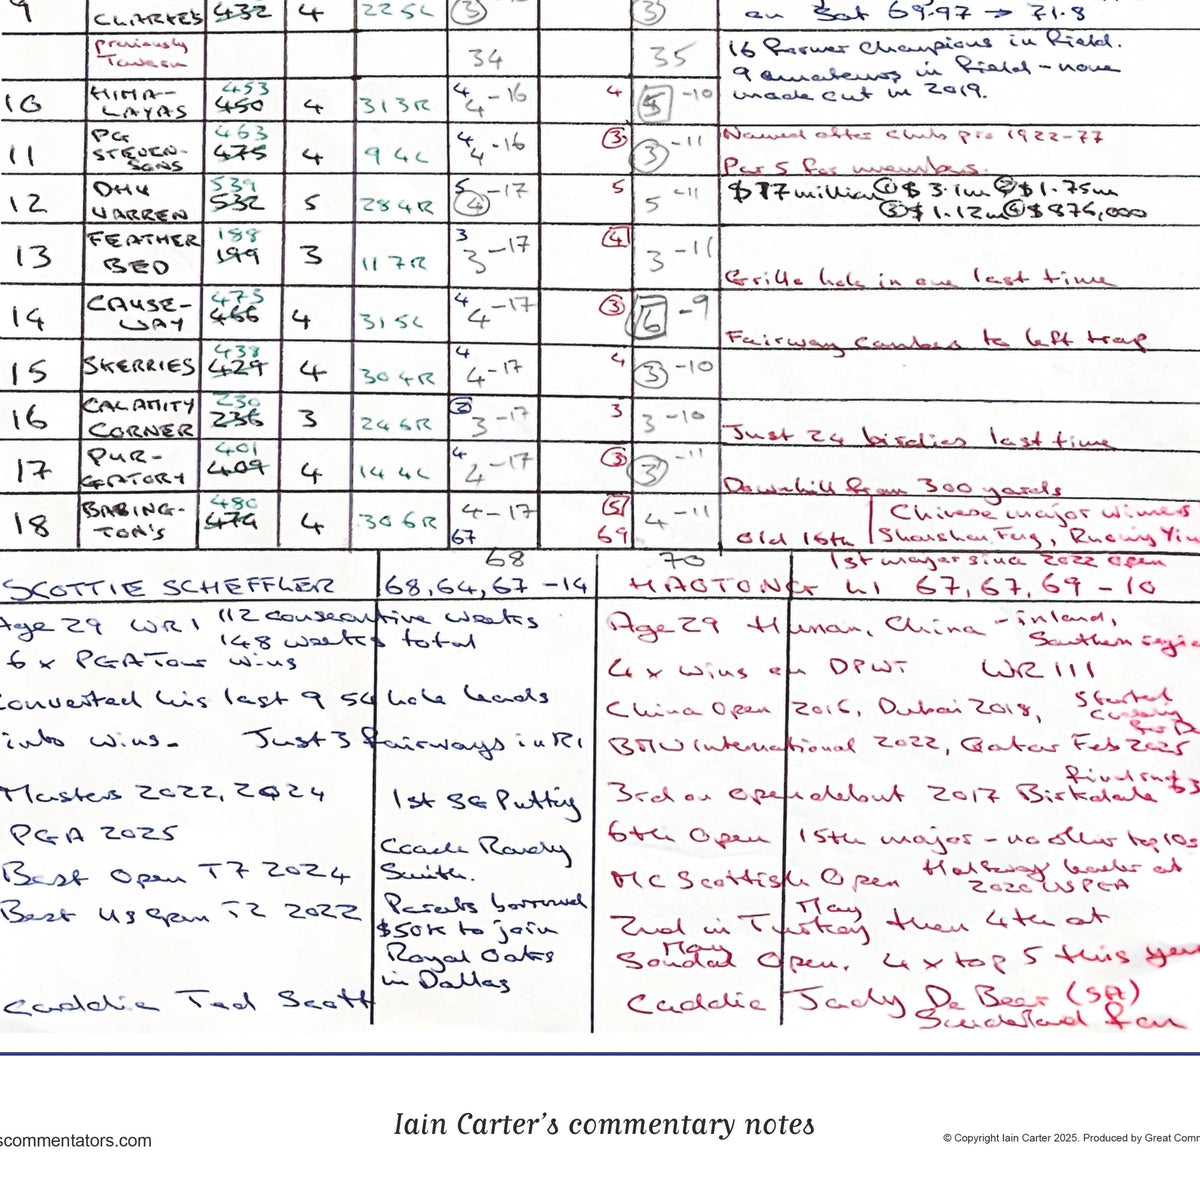 9 CLARKE'S 432 4 225L 3 3 on Sat 69.97 → 71.8
Previously
34 35 16 Former Champions in field.
9 amateurs in field - none
made cut in 2019.
10 HIMA-LAYAS 453 450 4 313R 4 4 -16 4 5 -10
11 PG STEVENSONS 463 475 4 94L 4 4 -16 3 3 -11 Named after club pro 1922-77
Par 5 for members.
12 DHU VARREN 539 532 5 284R 5 4 -17 5 5 -11 $17 million ① $3.1m ② $1.75m
③ $1.12m ④ $876,000
13 FEATHER BED 188 199 3 117R 3 3 -17 4 3 -11 Grillo hole in one last time
14 CAUSE-WAY 473 466 4 315L 4 4 -17 3 6 -9 Fairway cambers to left trap
15 SKERRIES 433 429 4 304R 4 4 -17 4 3 -10
16 CALAMITY CORNER 230 236 3 246R 2 3 -17 3 3 -10 Just 24 birdies last time
17 PUR-GATORY 401 409 4 144L 4 4 -17 3 3 -11 Downhill from 300 yards
18 BABING-TON'S 480 474 4 306R 4 -17 5 4 -11 Old 16th
67 69
Chinese major winners
Shanshan Feng, Ruoning Yin
1st major since 2022 open
68 70
SCOTTIE SCHEFFLER 68, 64, 67 -14
Age 29 WR1 112 consecutive weeks
148 weeks total
6 x PGA Tour wins
Converted his last 9 54 hole leads
into wins. Just 3 fairways in R1
Masters 2022, 2024
PGA 2025
Best Open T7 2024
Best US Open T2 2022
Caddie Ted Scott
1st SG Putting
Coach Randy
Smith.
Parents borrowed
$50K to join
Royal Oaks
in Dallas
HAOTONG LI 67, 67, 69 -10
Age 29 Hunan, China - inland,
Southern
4 x wins on DPWT WR 111
China Open 2016, Dubai 2018,
Started
BMW International 2022, Qatar Feb 2025
Final rnd 63
3rd on Open debut 2017 Birkdale
6th Open 15th major - no other top 10s
MC Scottish Open Halfway leader at
2020 USPGA
2nd in Turkey May then 4th at
Soudal Open. May 4 x top 5 this year
Caddie Jady De Beer (SA)
Sunderland fan
Iain Carter's commentary notes
scommentators.com
© Copyright Iain Carter 2025. Produced by Great Comm